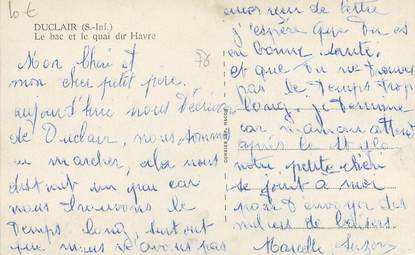 10 €
DUCLAIR (S.-Inf.)
Le bac et le quai du Havre
78
Mon Chéri et
mon cher petit père.
aujourd'hui nous t'écrivons
de Duclair, nous sommes
au marcher, cela nous
distrait un peu car
nous trouvons le
temps long, surtout
que nous n'avons pas
encore reçu de lettre
j'espère que tu es
en bonne santé.
et que tu ne trouves
pas le temps trop
long. je termine
car maman attend
après le stylo
notre petite chérie
se joint a moi
pour t'envoyer des
milliers de baisers.
Marcelle Suzanne